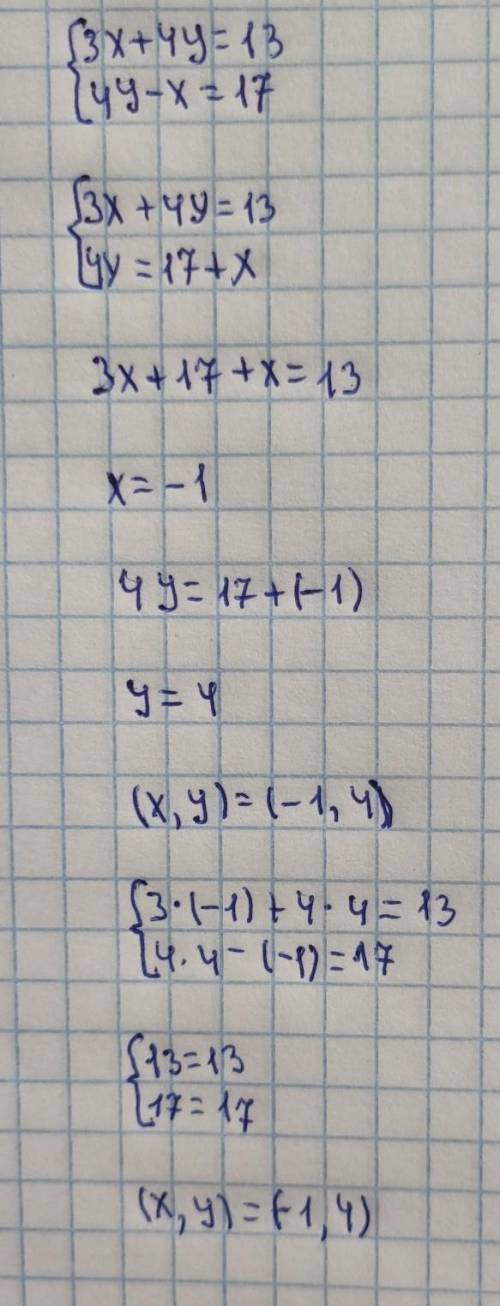 {3x+4y=13
{4y-x=17
{3x+4y=13
{4y=17+x
3x+17+x=13
x=-1
4y=17+(-1)
y=4
(x,y)=(-1,4)
{3·(-1)+4·4=13
{4·4-(-1)=17
{13=13
{17=17
(x,y)=(-1,4)